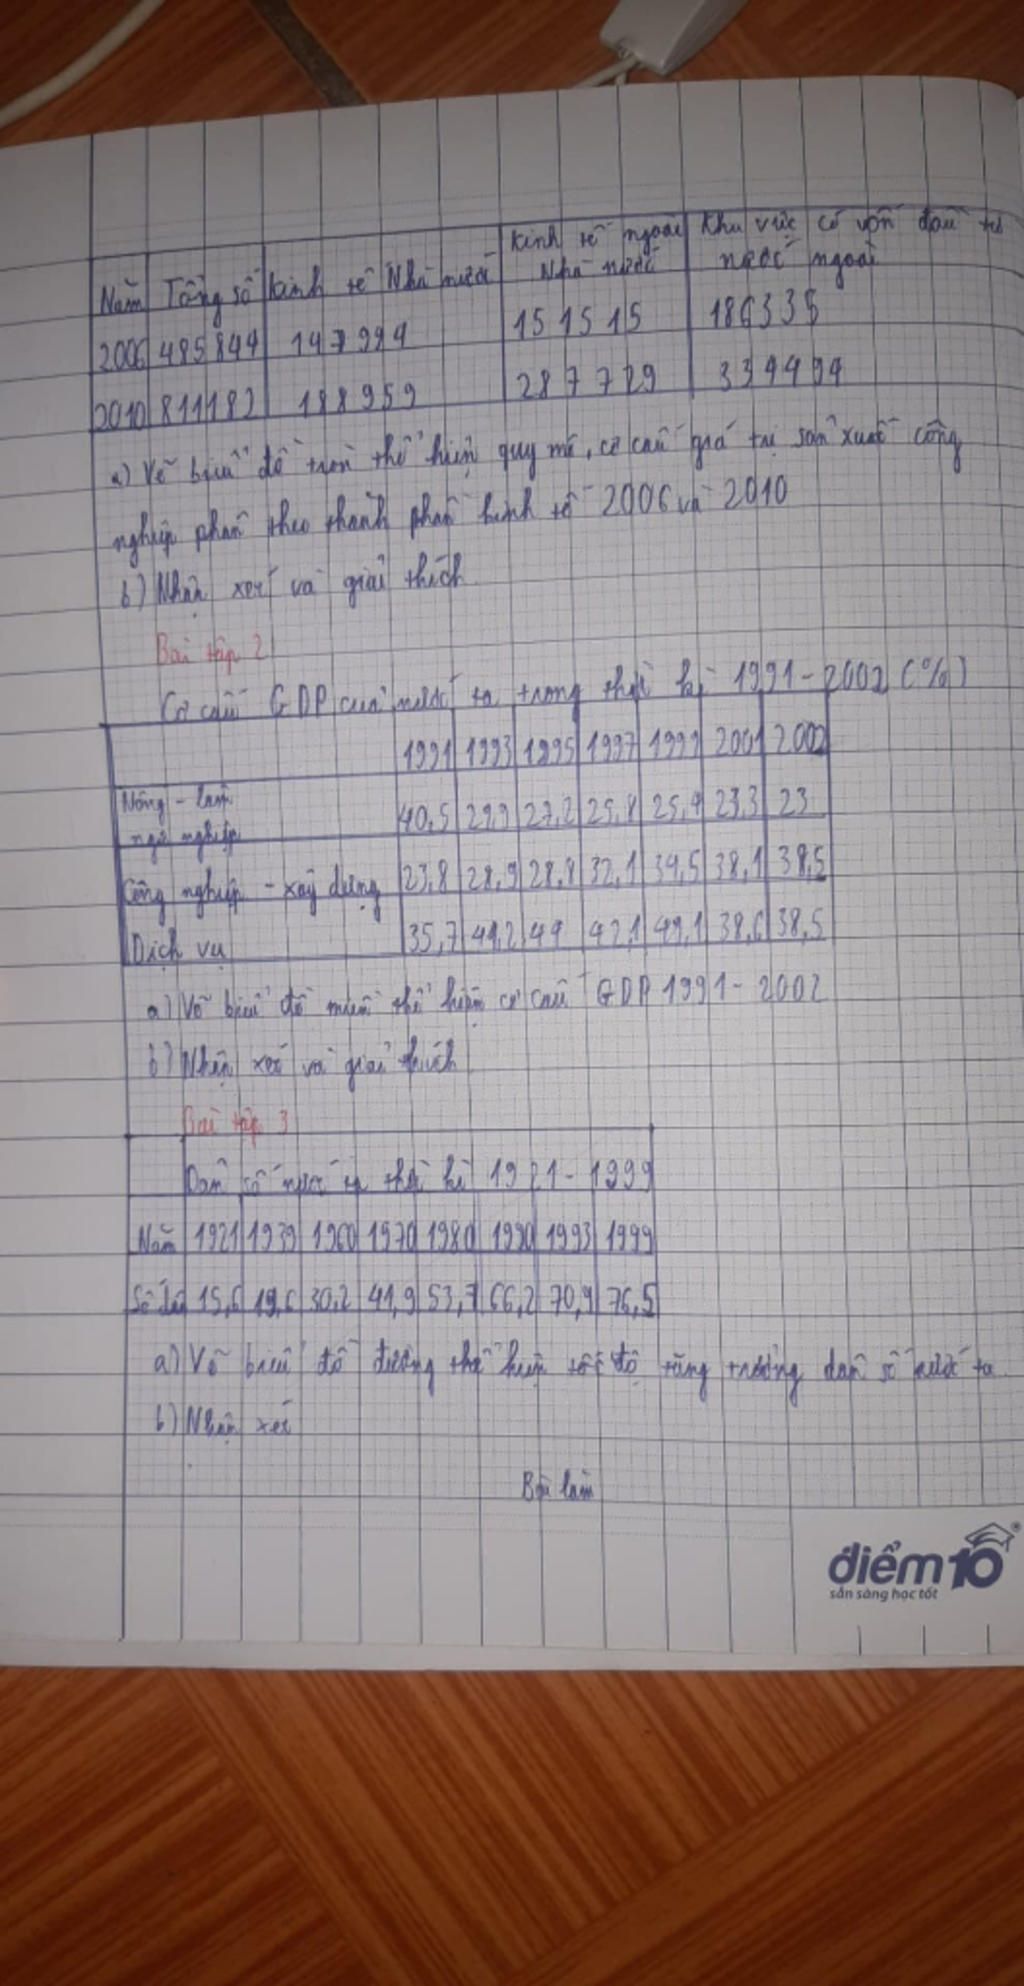 Kinh tế ngoài Khu vực có vốn đầu tư
Năm Tổng số Kinh tế Nhà nước Nhà nước nước ngoài
2006 485844 147994 151515 186335
2010 811182 188959 287729 334494
a) Vẽ biểu đồ tròn thể hiện quy mô, cơ cấu giá trị sản xuất công
nghiệp phân theo thành phần kinh tế 2006 và 2010
b) Nhận xét và giải thích
Bài tập 2
Cơ cấu GDP của nước ta trong thời kì 1991-2002 (%)
1991 1993 1995 1997 1999 2001 2002
Nông - lâm
ngư nghiệp 40,5 29,9 27,2 25,8 25,4 23,3 23
Công nghiệp - xây dựng 23,8 28,9 28,8 32,1 34,5 38,1 38,5
Dịch vụ 35,7 41,2 44 42,1 40,1 38,6 38,5
a) Vẽ biểu đồ miền thể hiện cơ cấu GDP 1991-2002
b) Nhận xét và giải thích
Bài tập 3
Dân số nước ta thời kì 1921-1999
Năm 1921 1939 1960 1970 1980 1990 1993 1999
Số dân 15,6 19,6 30,2 41,9 53,7 66,2 70,9 76,5
a) Vẽ biểu đồ đường thể hiện tốc độ tăng trưởng dân số nước ta
b) Nhận xét
Bài làm
điểm10
sẵn sàng học tốt